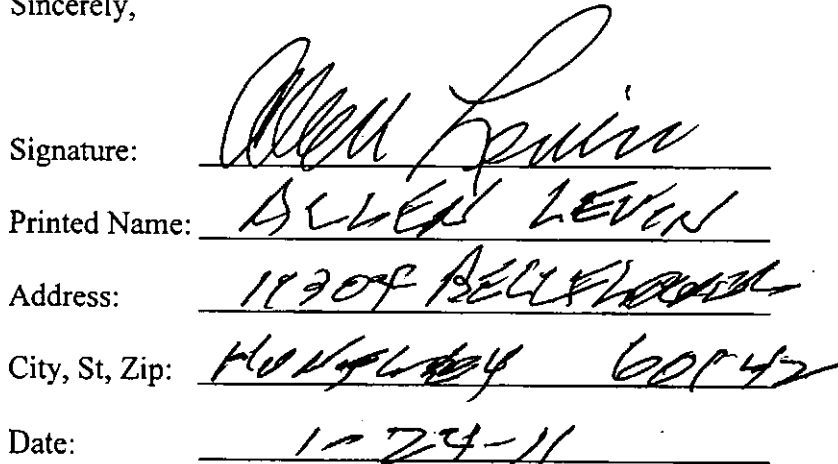 Sincerely,
Signature: Allen Levin
Printed Name: ALLEN LEVIN
Address:
City, St, Zip: HUNTLEY 60142
Date: 1-24-11